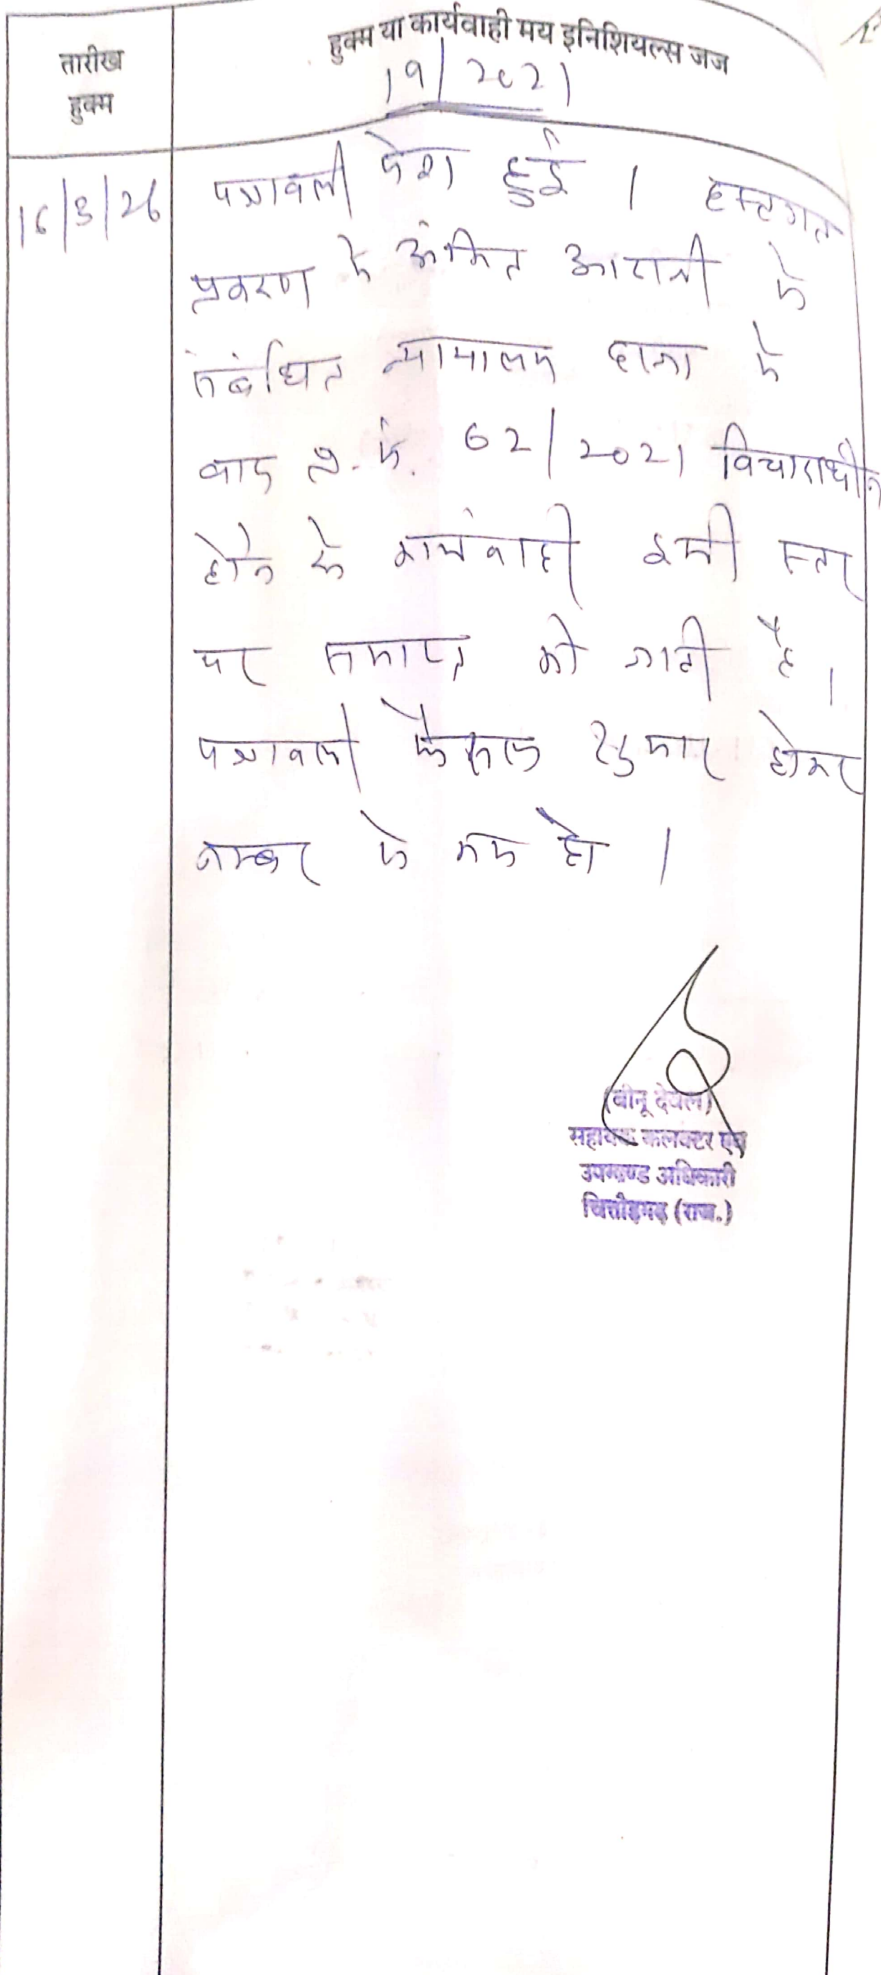 तारीख
हुक्म
हुक्म या कार्यवाही मय इनिशियल्स जज
19/2021
16/3/26
पत्रावली पेश हुई । हस्तगत
प्रकरण में अंकित आराजी के
संबंधित न्यायालय हाजा में
वाद प्र.सं. 62/2021 विचाराधीन
होने से कार्यवाही इसी स्तर
पर समाप्त की जाती है ।
पत्रावली फैसल शुमार होकर
नम्बर से कम हो ।
(बीनू देवल)
सहायक कलक्टर एवं
उपखण्ड अधिकारी
चित्तौड़गढ़ (राज.)